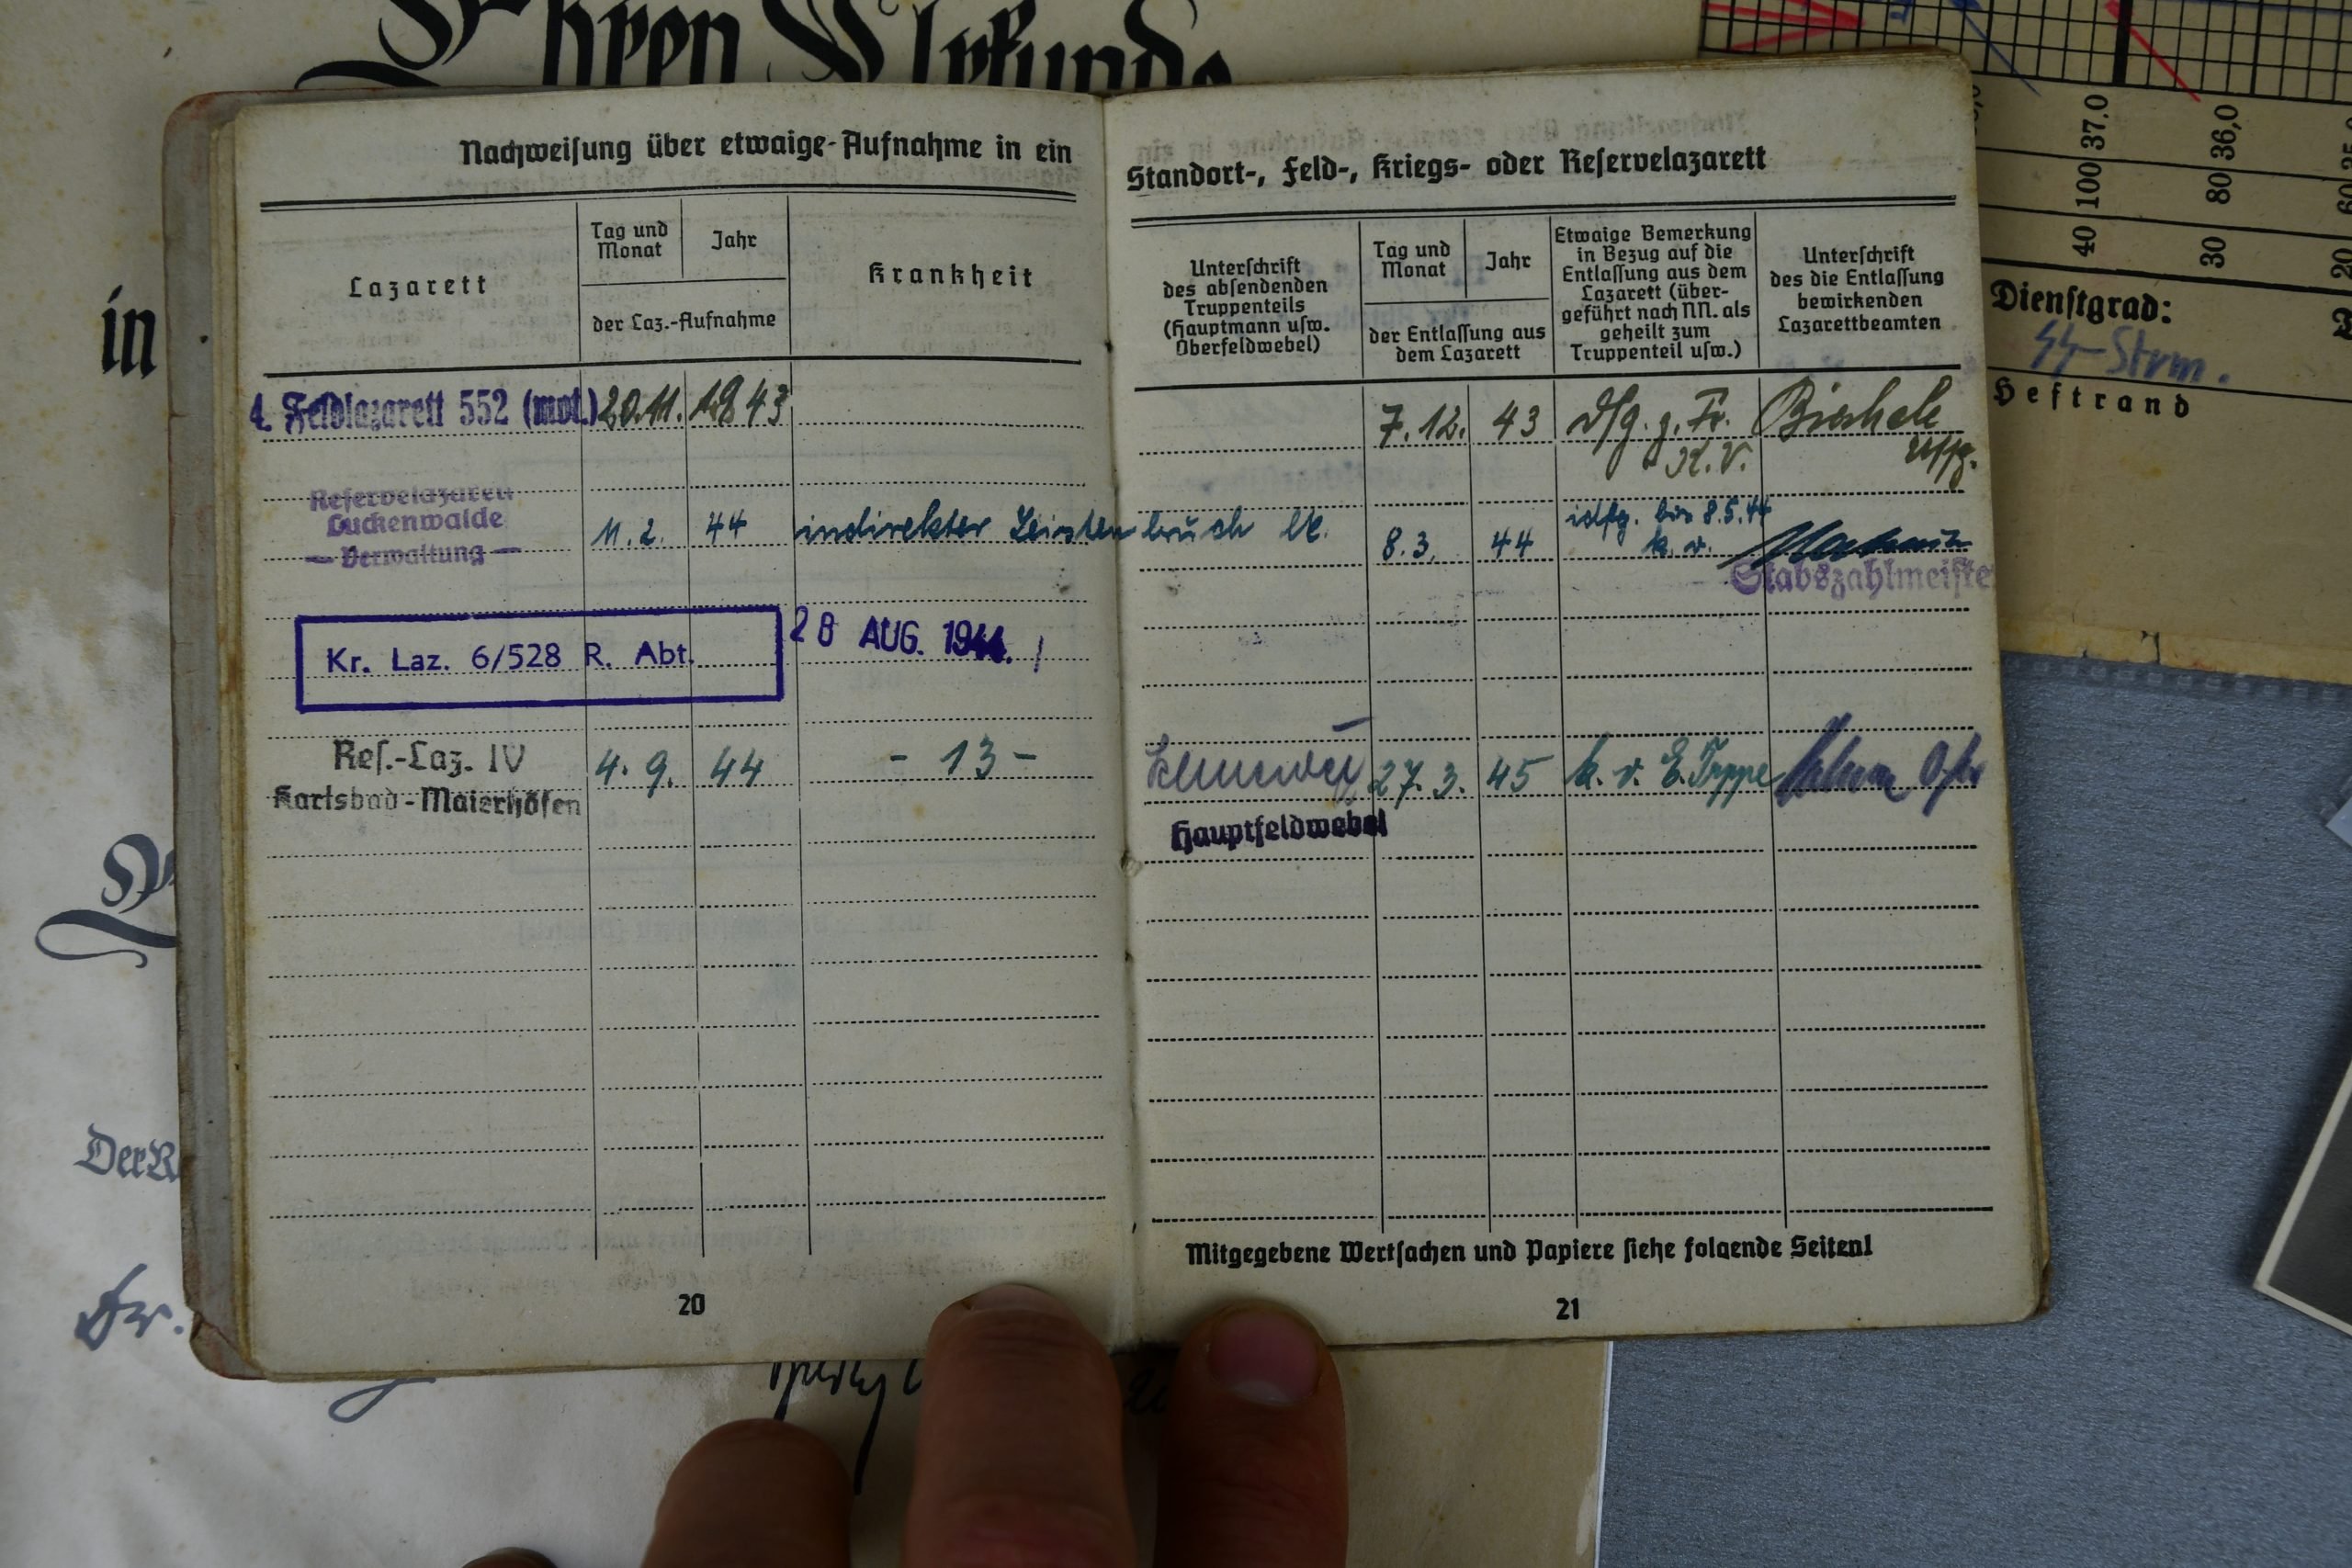 Ehren Urkunde
in
Nachweisung über etwaige Aufnahme in ein
Lazarett
Tag und
Monat
Jahr
der Laz.-Aufnahme
Krankheit
4. Feldlazarett 552 (mot.) 20.11. 1943
Reservelazarett
Luckenwalde
— Verwaltung —
11. 2. 44 indirekter Leistenbruch lk.
Kr. Laz. 6/528 R. Abt.
28 AUG. 1944.
Res.-Laz. IV
Karlsbad-Maierhöfen
4. 9. 44 - 13 -
20
Standort-, Feld-, Kriegs- oder Reservelazarett
Unterschrift
des absendenden
Truppenteils
(Hauptmann usw.
Oberfeldwebel)
Tag und
Monat
Jahr
der Entlassung aus
dem Lazarett
Etwaige Bemerkung
in Bezug auf die
Entlassung aus dem
Lazarett (über-
geführt nach NN. als
geheilt zum
Truppenteil usw.)
Unterschrift
des die Entlassung
bewirkenden
Lazarettbeamten
7. 12. 43 dfg. z. Tr.
K.V.
8. 3. 44 bis 8.5.44
k. v.
Stabszahlmeister
27. 3. 45 k. v. E. Trppe
Hauptfeldwebel
Mitgegebene Wertsachen und Papiere siehe folgende Seiten!
21
37,0
36,0
100
80
60
40
30
20
Dienstgrad:
SS-Strm.
Heftrand
Der R